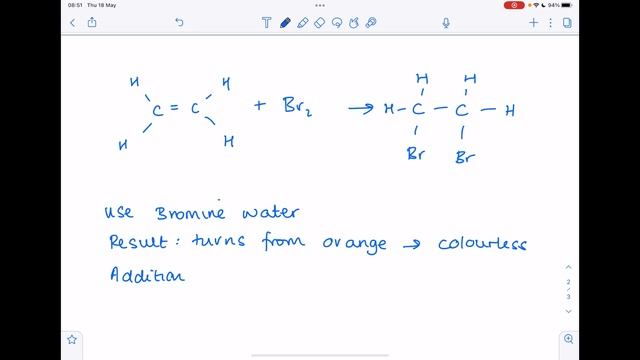 08:51 Thu 18 May
94%
H H H H
C = C + Br2 → H - C - C - H
H H Br Br
use Bromine water
Result: turns from orange → colourless
Addition
2
3